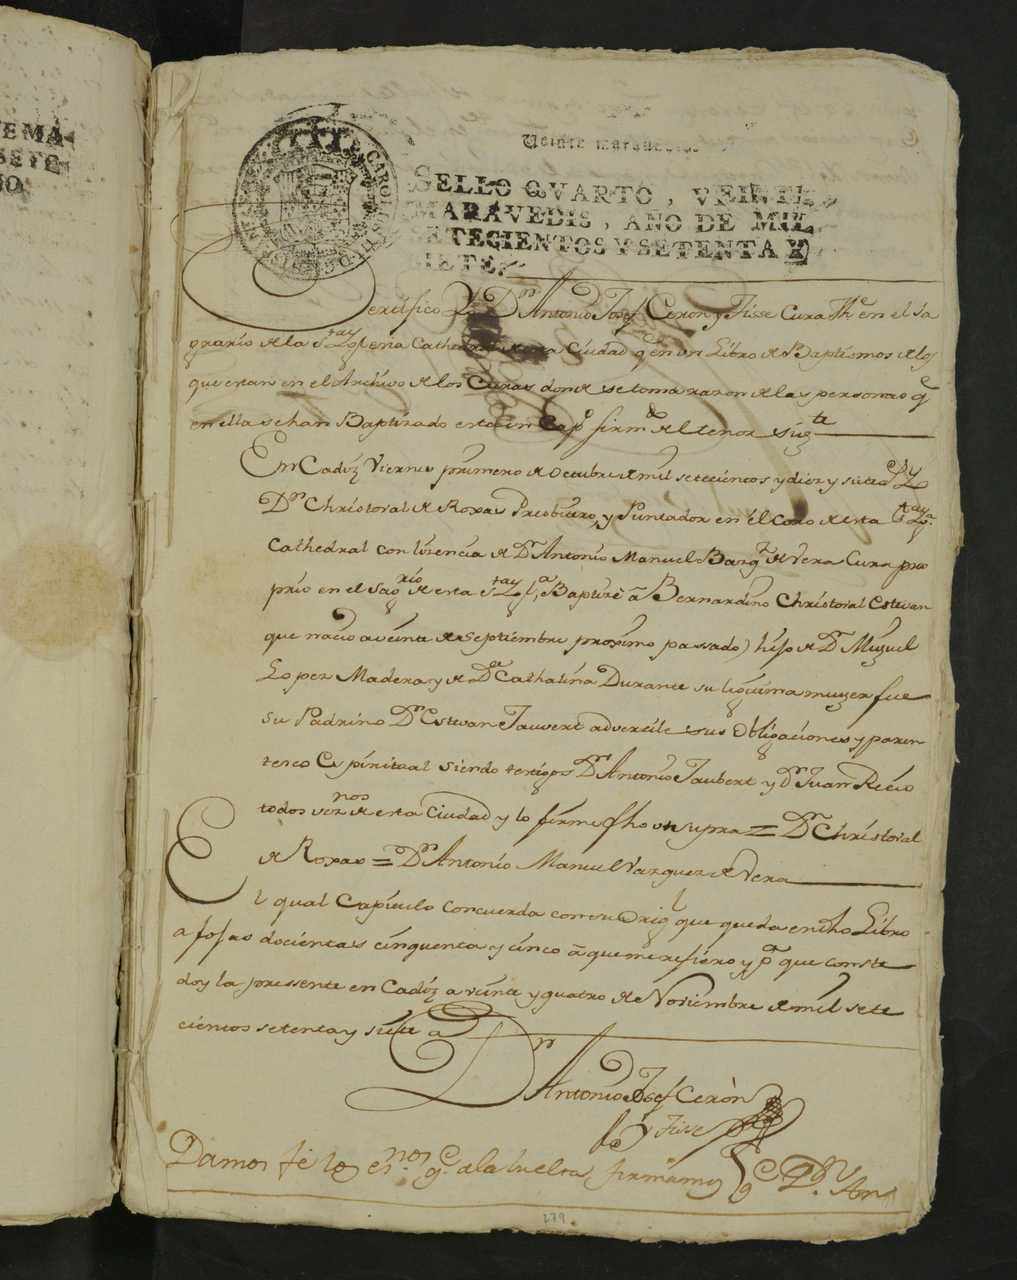 TEMA
SETE
Veinte maravedis.
CAROLUS III D G
SELLO QVARTO, VEINTE
MARAVEDIS, AÑO DE MIL
SETECIENTOS Y SETENTA Y
SIETE.
Certifico Yo Dn Antonio Josef Ceron y Fisse Cura The en el Sa
grario de la Sta Yglesia Cathedral de esta Ciudad q en un Libro de Baptismos de los
que estan en el Archivo de los Curas donde se toma razon de las personas q
en ella se han Baptizado esta un Capo firmdo del tenor sigte
En Cadiz Viernes primero de Octubre de mil setecientos y diez y siete as Yo
Dn Christoval de Roxas Presbitero, y Puntador en el Coro de esta Sta Yga
Cathedral con lisencia de Dn Antonio Manuel Bazqz de Vera Cura pro
prio en el Sagrio de esta Sta Yglª, Baptizè à Bernardino Christoval Estevan
que nacio a veinte de Septiembre proximo passado) hijo de Dn Miguel
Lopez Madera y de Da Cathalina Durante su ligitima muger fue
su Padrino Dn Estevan Jauvert advertile sus obligaciones y paren
tesco Espiritual siendo testigos Dn Antonio Jaubert y Dn Juan Recio
todos veznos de esta Ciudad y lo firme fho ut supra = Dn Christoval
de Roxas = Dn Antonio Manuel Vazquez de Vera
El qual Capitulo concuerda con su Origl que queda en dho Libro
a fojas docientas cinquenta y cinco à que me refiero y pª que conste
doy la pressente en Cadiz a veinte y quatro de Noviembre de mil sete
cientos setenta y siete as
Dn Antonio Josef Ceròn
y Fisse
Damos fe los esnos q. a la buelta firmamos q e Dn. An
279